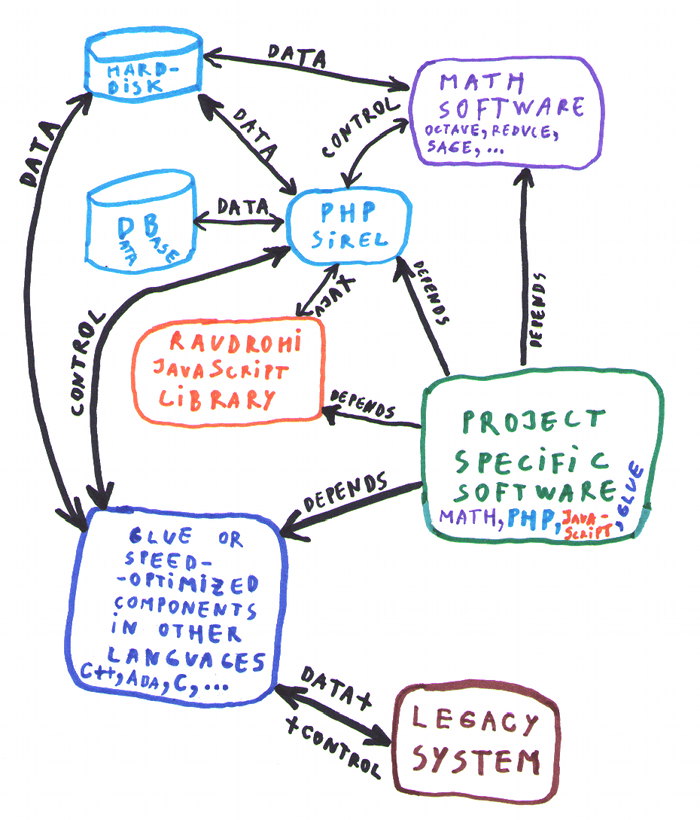 HARD-
DISK
DATA
MATH
SOFTWARE
OCTAVE, REDUCE,
SAGE, ...
DATA
DATA
CONTROL
DATA BASE
DATA
PHP
SiREL
CONTROL
AJAX
DEPENDS
DEPENDS
RAUDROHI
JAVASCRIPT
LiBRARY
DEPENDS
PROJECT
SPECiFiC
SOFTWARE
MATH, PHP, JAVA-
SCRiPT, GLUE
DEPENDS
GLUE OR
SPEED-
-OPTiMiZED
COMPONENTS
iN OTHER
LANGUAGES
C++, ADA, C, ...
DATA+
+CONTROL
LEGACY
SYSTEM